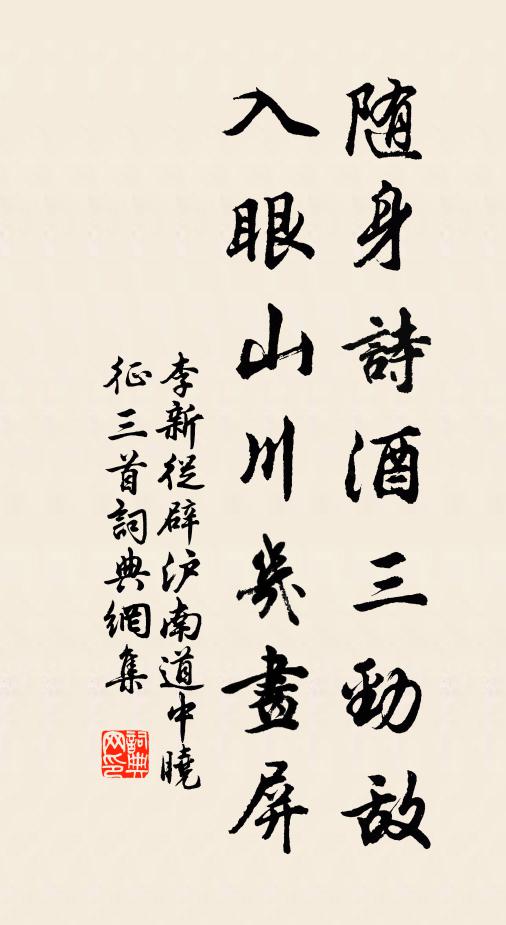 随身詩酒三勁敌
入眼山川幾畫屏
李新從辟泸南道中曉
征三首詞典網集
詞典
网印